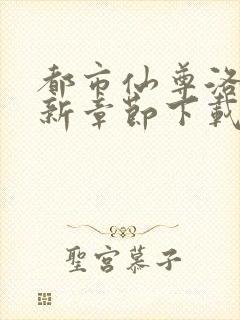 都市仙尊洛
新章節下載
聖宮慕子